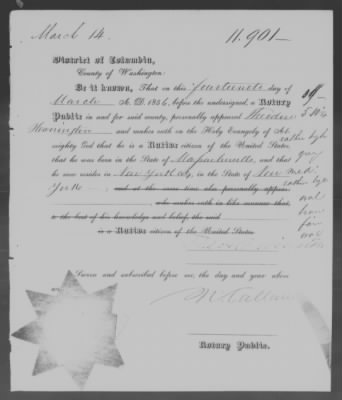 March 14. 11.901—
District of Columbia,
County of Washington:
Be it known, That on this fourteenth day of
March A. D. 1856, before the undersigned, a Notary
Public in and for said county, personally appeared Theodore
and maketh oath on the Holy Evangely of Al-
mighty God that he is a Native citizen of the United States,
that he was born in the State of Massachusetts, and that
he now resides in New York City, in the State of New
York —, and at the same time also personally appear-
, who maketh oath in like manner that
to the best of his knowledge and belief, the said
is a Native citizen of the United States.
Sworn and subscribed before me, the day and year above
Notary Public.
19—
rather high
gray
med.
oval
brown
fair
oval